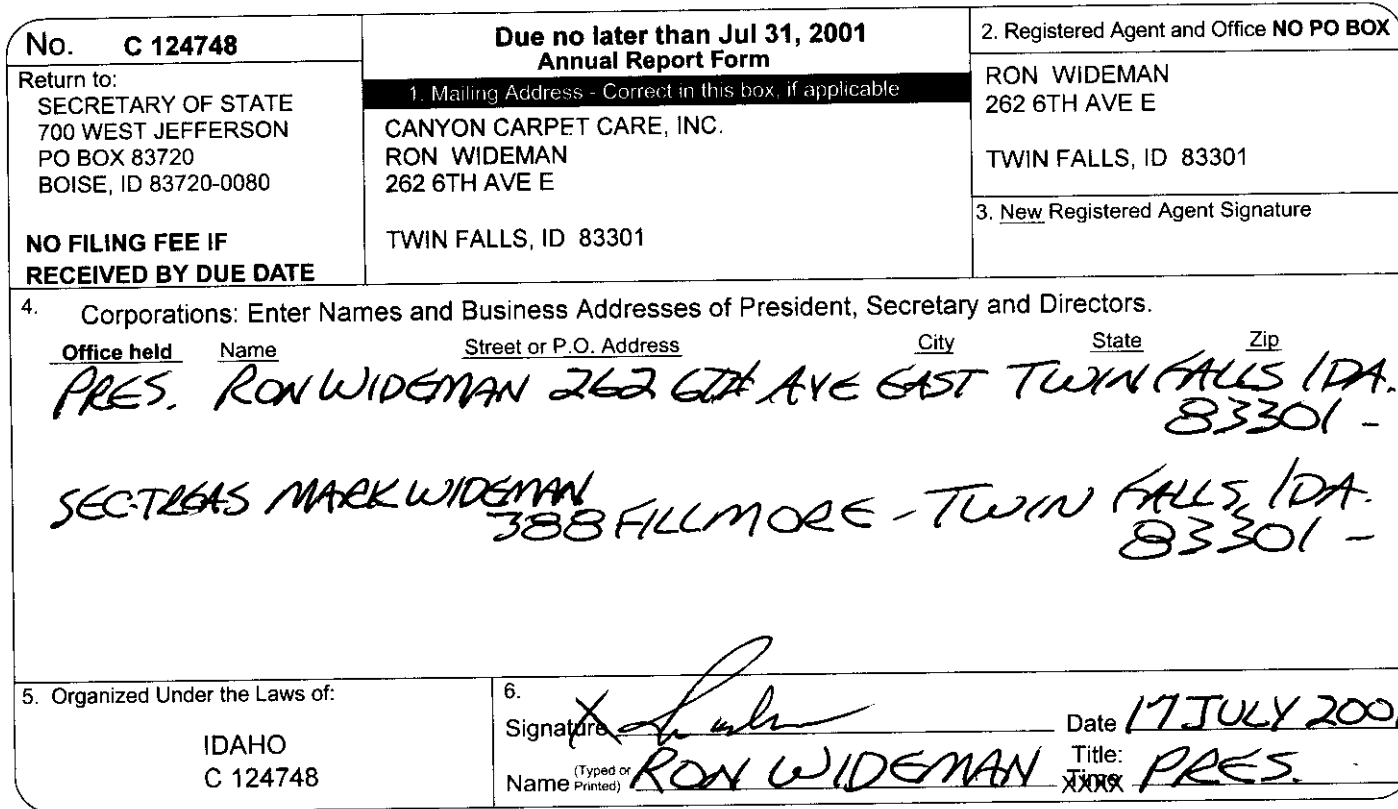 No. C 124748
Return to:
SECRETARY OF STATE
700 WEST JEFFERSON
PO BOX 83720
BOISE, ID 83720-0080
NO FILING FEE IF
RECEIVED BY DUE DATE
Due no later than Jul 31, 2001
Annual Report Form
1. Mailing Address - Correct in this box, if applicable
CANYON CARPET CARE, INC.
RON WIDEMAN
262 6TH AVE E
TWIN FALLS, ID 83301
2. Registered Agent and Office NO PO BOX
RON WIDEMAN
262 6TH AVE E
TWIN FALLS, ID 83301
3. New Registered Agent Signature
4. Corporations: Enter Names and Business Addresses of President, Secretary and Directors.
Office held Name Street or P.O. Address City State Zip
PRES. RON WIDEMAN 262 6TH AVE EAST TWIN FALLS IDA.
83301 -
SEC-TREAS MARK WIDEMAN
388 FILLMORE - TWIN FALLS, IDA.
83301 -
5. Organized Under the Laws of:
IDAHO
C 124748
6.
Signature X Date 17 JULY 2001
Name (Typed or Printed) RON WIDEMAN Title: PRES.